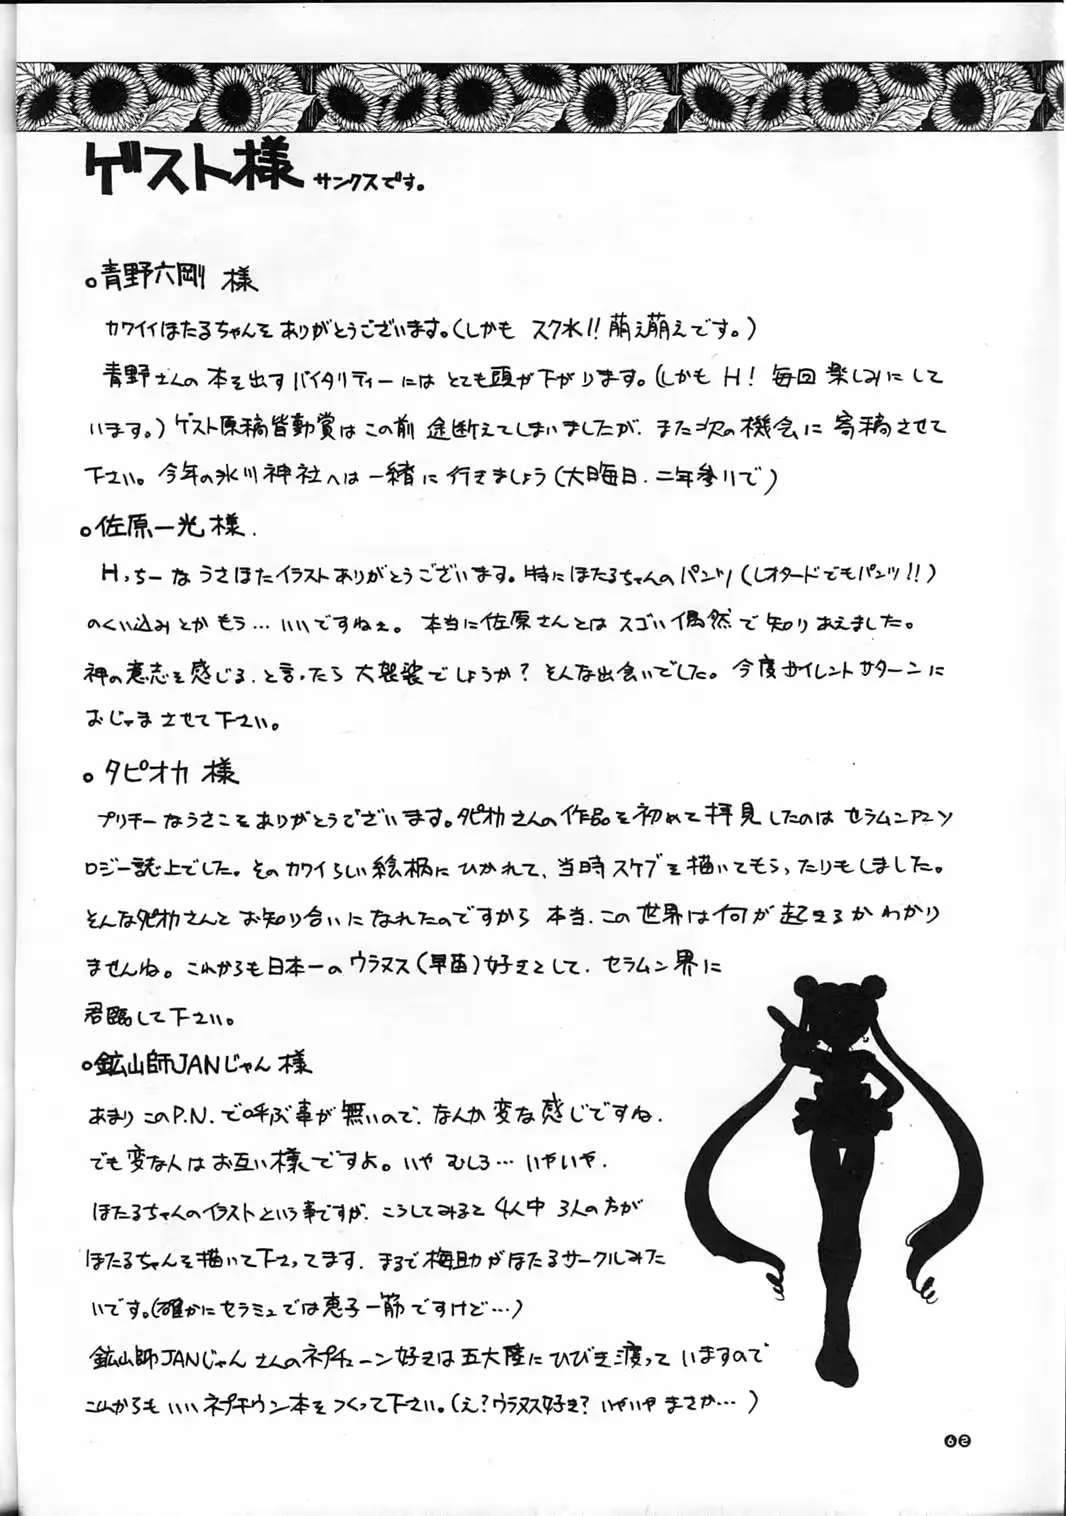 ゲスト様 サンクスです。
。青野六剛 様
カワイイほたるちゃんをありがとうございます。(しかも スク水!! 萌え萌えです。)
青野さんの本を出すバイタリティーにはとても頭が下がります。(しかもH! 毎回楽しみにして
います。) ゲスト原稿皆勤賞はこの前途断えてしまいましたが、また次の機会に寄稿させて
下さい。今年の氷川神社へは一緒に行きましょう(大晦日、二年参りで)
。佐原一光 様.
Hっちーなうさほたイラストありがとうございます。特にほたるちゃんのパンツ(レオタードでもパンツ!!)
のくい込みとかもう…いいですねぇ。本当に佐原さんとはスゴい偶然で知りあえました。
神の意志を感じる、と言ったら大袈裟でしょうか? そんな出会いでした。今度サイレントサターンに
おじゃまさせて下さい。
。タピオカ 様
プリチーなうさこをありがとうございます。タピオカさんの作品を初めて拝見したのはセラムンアン
ロジー誌上でした。そのカワイらしい絵柄にひかれて、当時スケブを描いてもらったりもしました。
そんなタピオカさんとお知り合いになれたのですから本当、この世界は何が起きるかわかり
ませんね。これからも日本一のウラヌス(早苗)好きとして、セラムン界に
君臨して下さい。
。鉱山師JANじゃん 様
あまりこのP.N.で呼ぶ事が無いので、なんか変な感じですね.
でも変な人はお互い様ですよ。いや むしろ…いやいや.
ほたるちゃんのイラストという事ですが、こうしてみると4人中3人の方が
ほたるちゃんを描いて下さってます、まるで梅助がほたるサークルみた
いです。(確かにセラミュでは恵子一筋ですけど…)
鉱山師JANじゃんさんのネプチューン好きは五大陸にひびき渡っていますので
これからもいいネプチウン本をつくって下さい。(え?ウラヌス好き? いやいやまさか…)
62